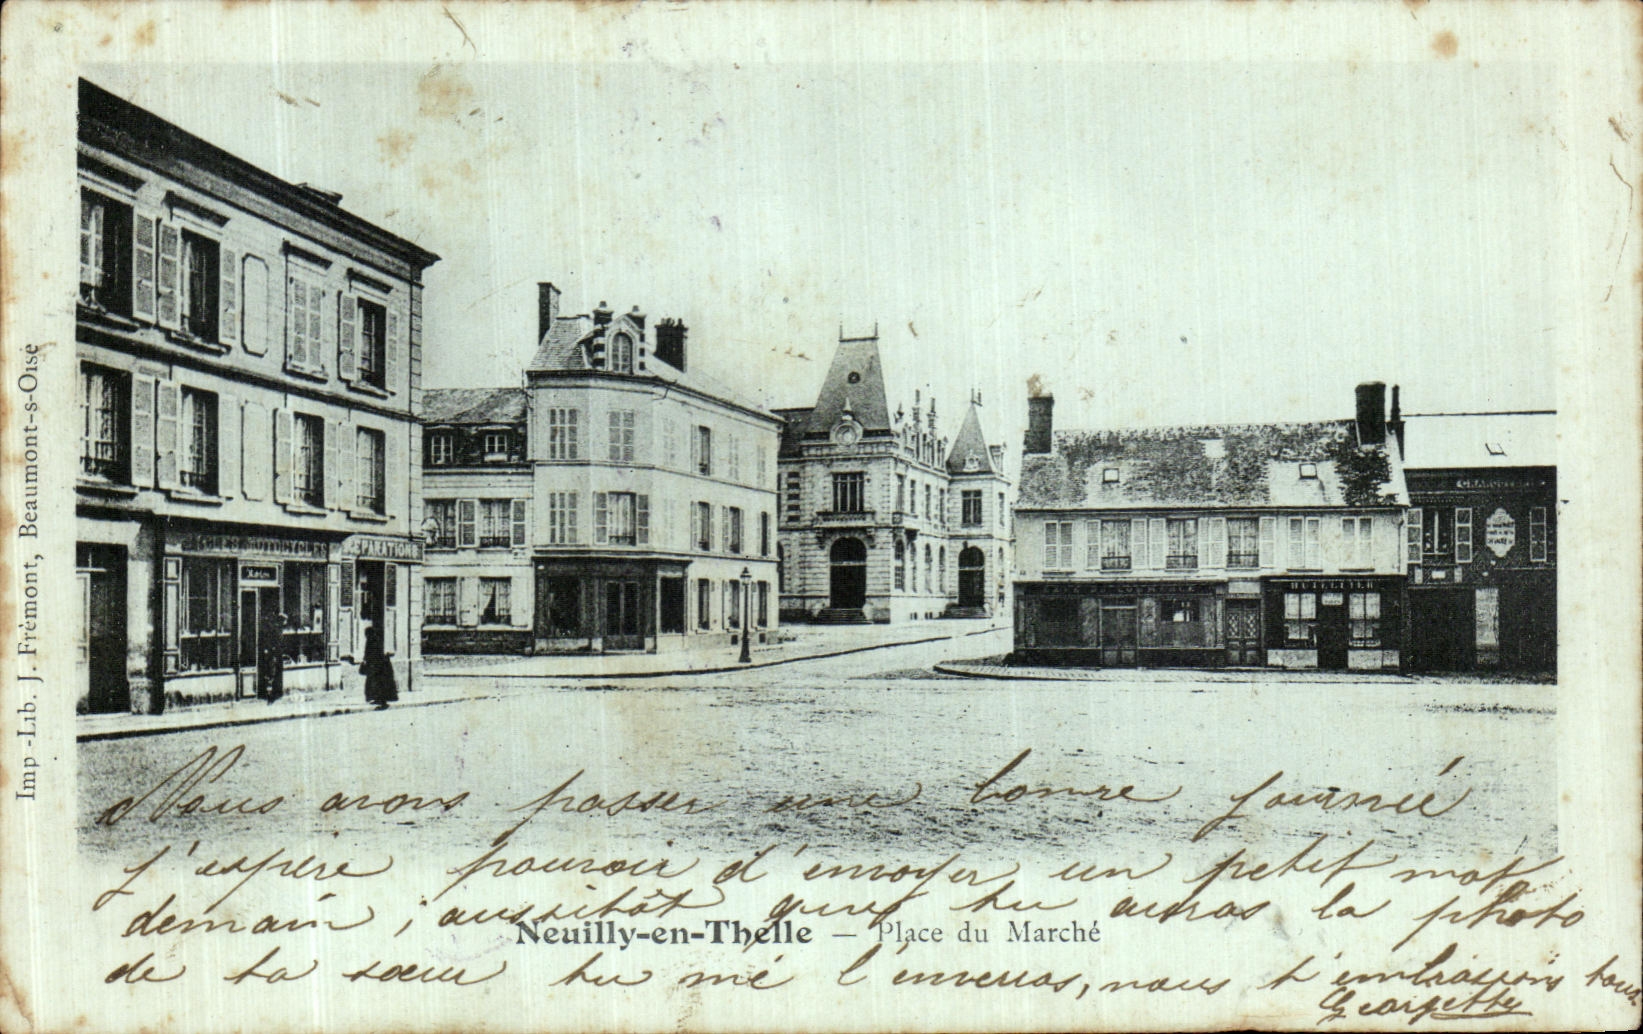 CYCLES AUTOCYCLES
RÉPARATIONS
CHARCUTERIE
HUILLIER
Imp-Lib. J. Frémont, Beaumont-s-Oise
Nous avons passer une bonne journée
j'espère pouvoir d'envoyer un petit mot
demain, aussitôt que tu auras la photo
Neuilly-en-Thelle — Place du Marché
de ta sœur tu mé l'enverras, nous t'embrassons tous
Georgette